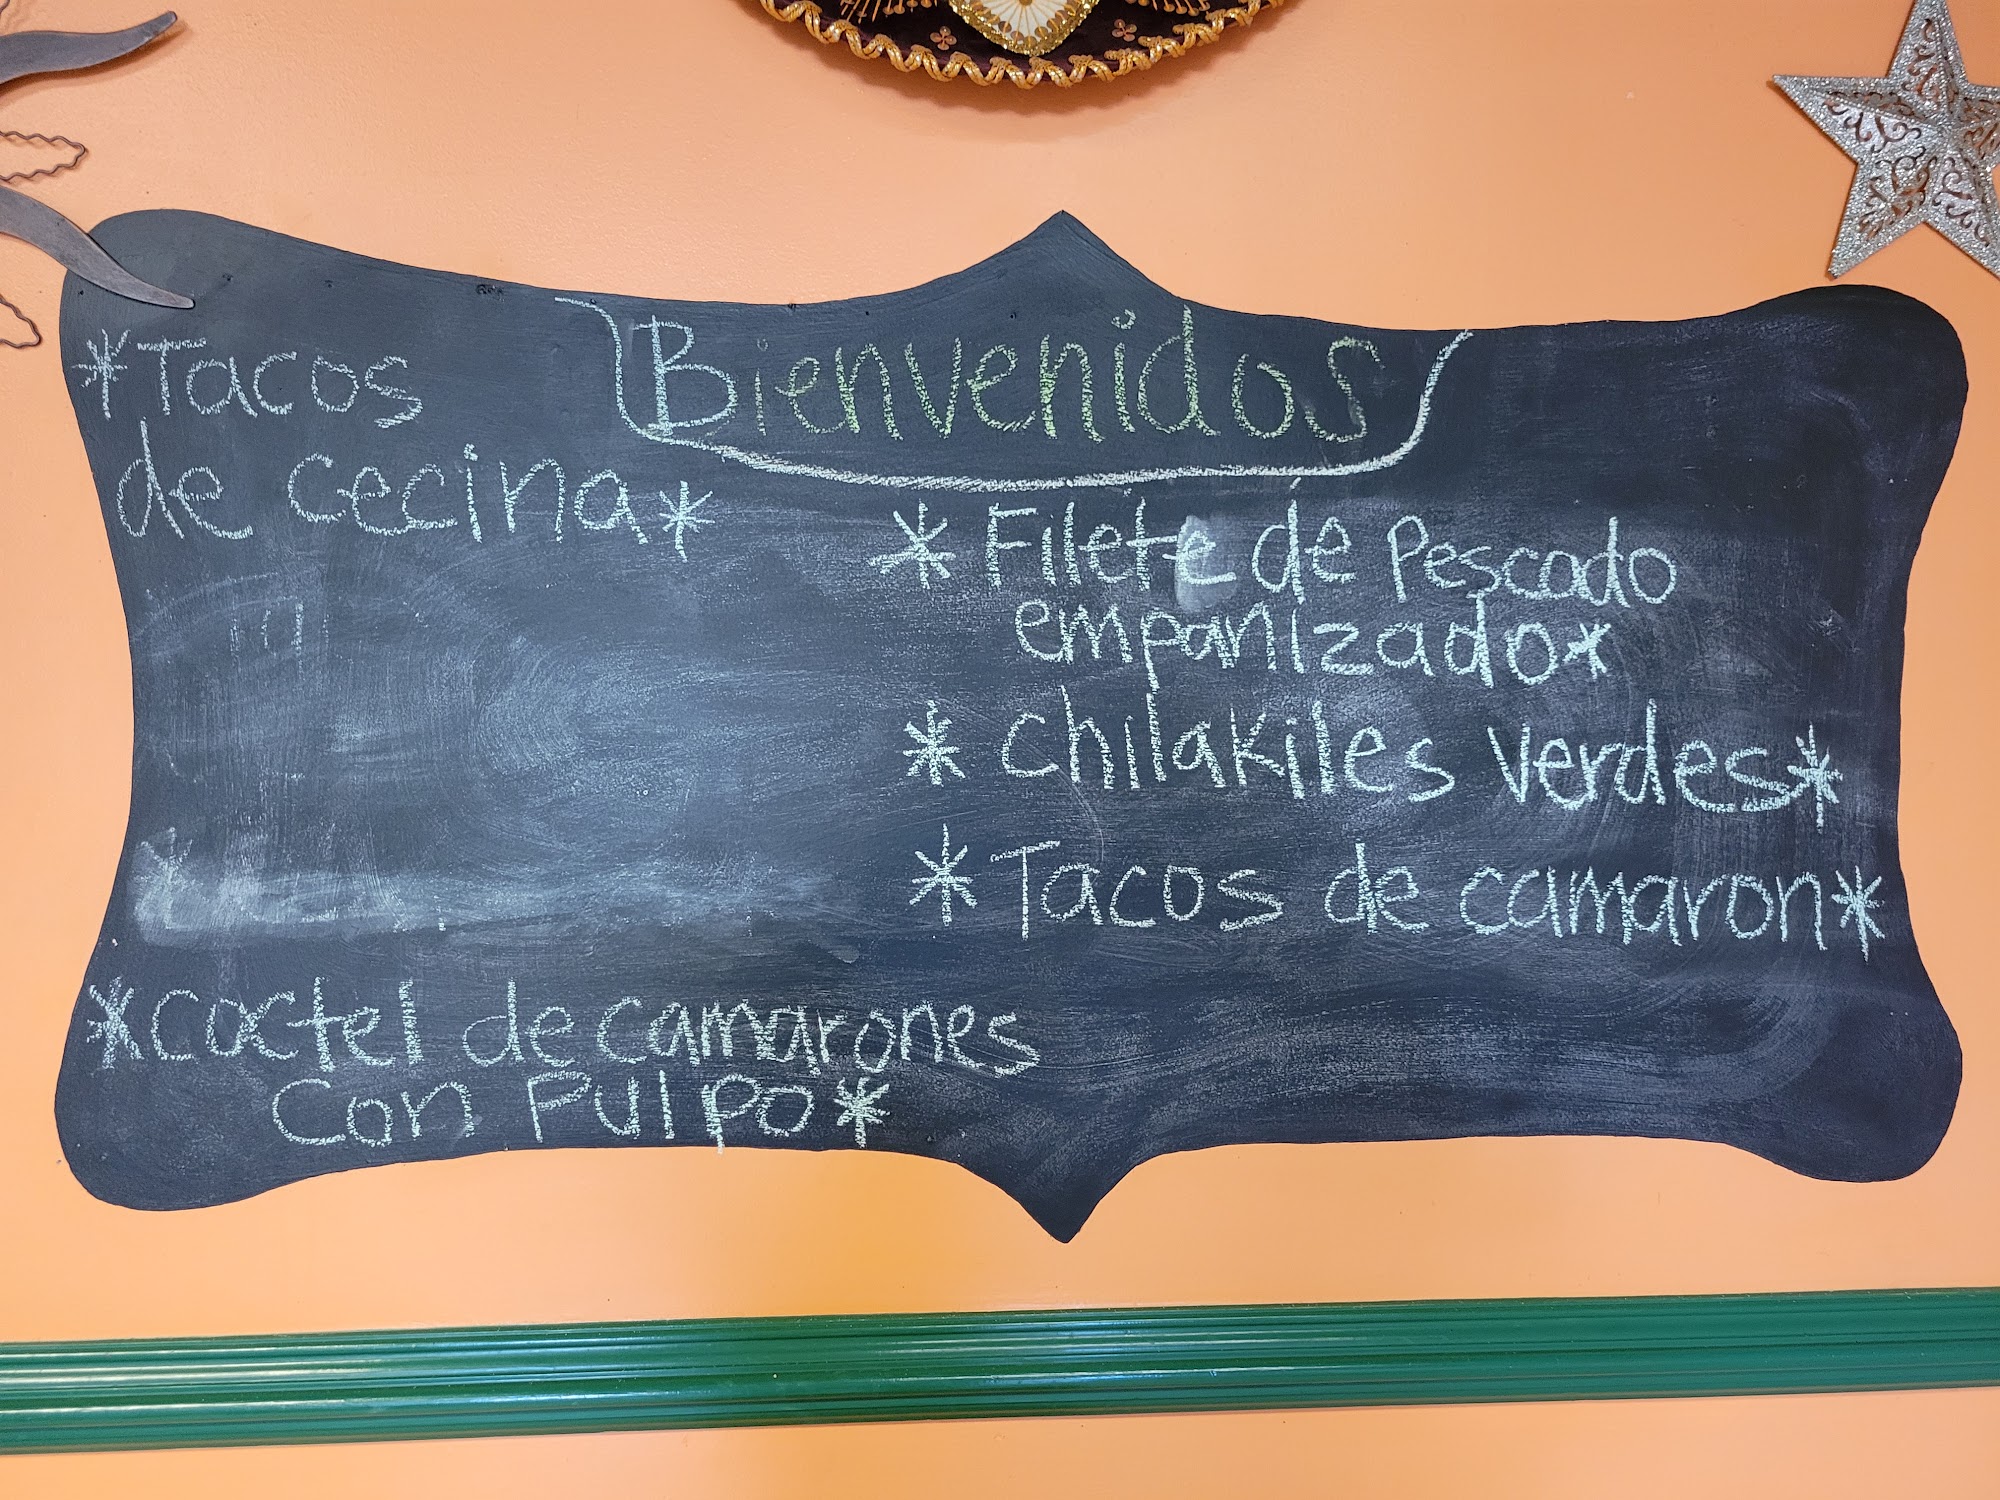 Bienvenidos
*Tacos
de cecina*
*Filete de Pescado
empanizado*
*Chilakiles verdes*
*Tacos de camaron*
*coctel de camarones
Con Pulpo*